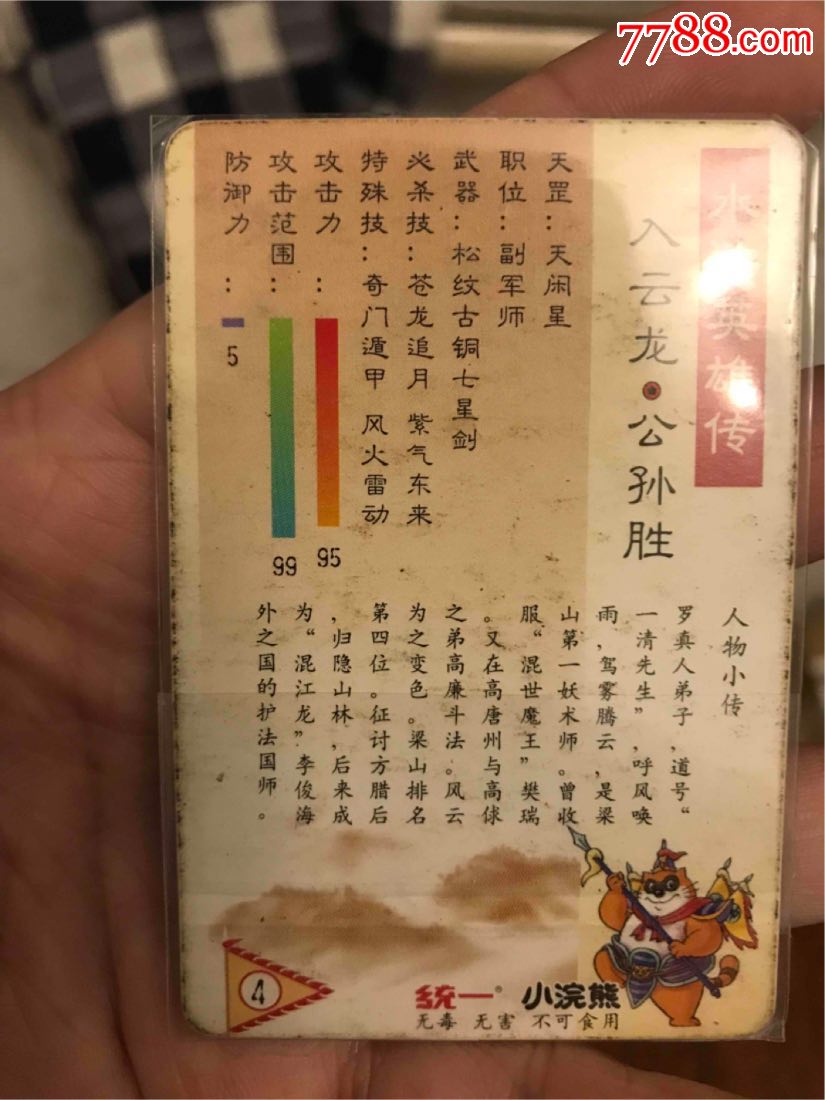 7788.com
水浒英雄传
入云龙·公孙胜
天罡：天闲星
职位：副军师
武器：松纹古铜七星剑
必杀技：苍龙追月 紫气东来
特殊技：奇门遁甲 风火雷动
攻击力：95
攻击范围：99
防御力：5
人物小传
罗真人弟子，道号“
一清先生”，呼风唤
雨，驾雾腾云，是梁
山第一妖术师。曾收
服“混世魔王”樊瑞
。又在高唐州与高俅
之弟高廉斗法。风云
为之变色。梁山排名
第四位。征讨方腊后
，归隐山林，后来成
为“混江龙”李俊海
外之国的护法国师。
4
统一® 小浣熊
无毒 无害 不可食用